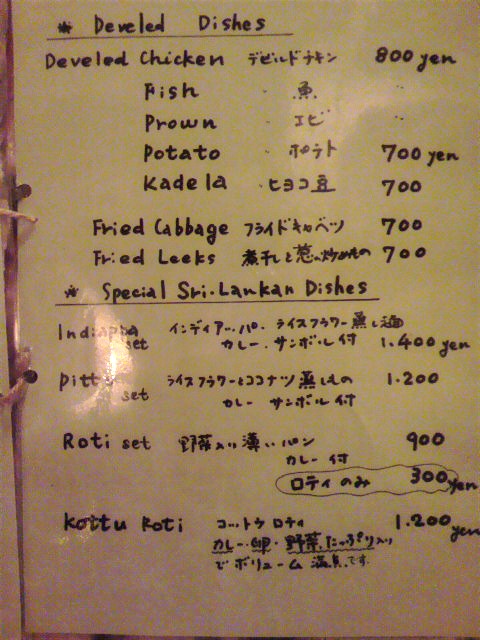 * Develed Dishes
Develed Chicken デビルドチキン 800 yen
Fish 〃 魚 〃
Prown 〃 エビ 〃
Potato 〃 ポテト 700 yen
Kadela 〃 ヒヨコ豆 700
Fried Cabbage フライドキャベツ 700
Fried Leeks 煮干しと葱の炒めもの 700
* Special Sri-Lankan Dishes
Indiappa インディアッパ・ライスフラワー蒸し麺
set カレー・サンボル付 1.400 yen
Pitt ライスフラワーとココナツ蒸しもの 1.200
set カレー サンボル付
Roti set 野菜入り薄いパン 900
カレー付
ロティのみ 300 yen
Kottu Roti コットゥロティ 1.200 yen
カレー・卵・野菜たっぷり入り
でボリューム満点です